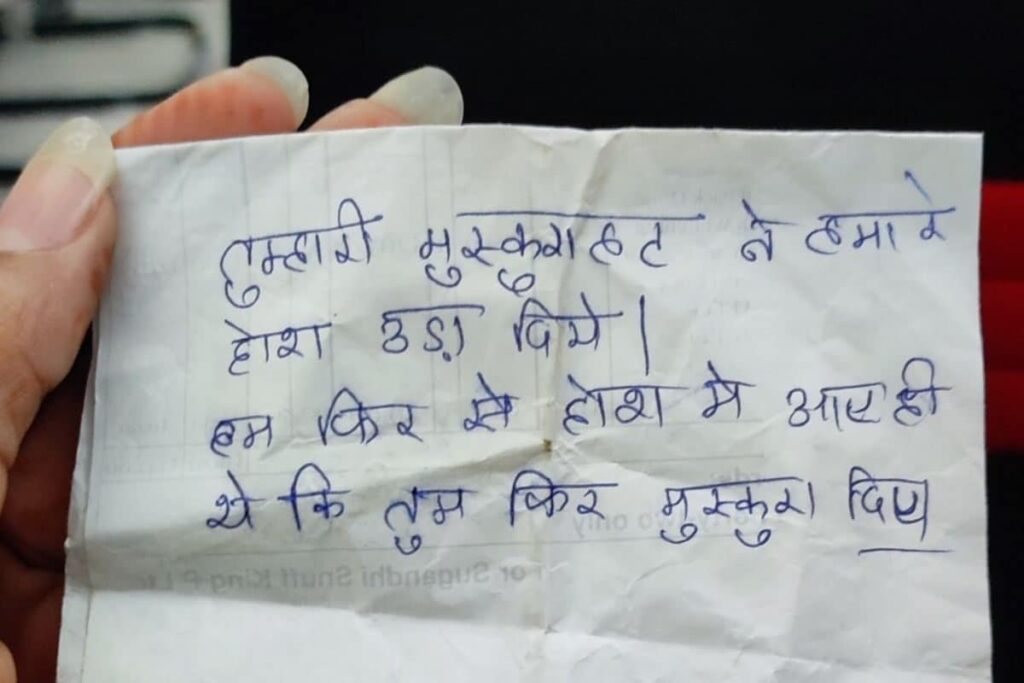 तुम्हारी मुस्कुराहट ने हमारे
होश उड़ा दिये।
हम फिर से होश मे आए ही
थे कि तुम फिर मुस्कुरा दिए